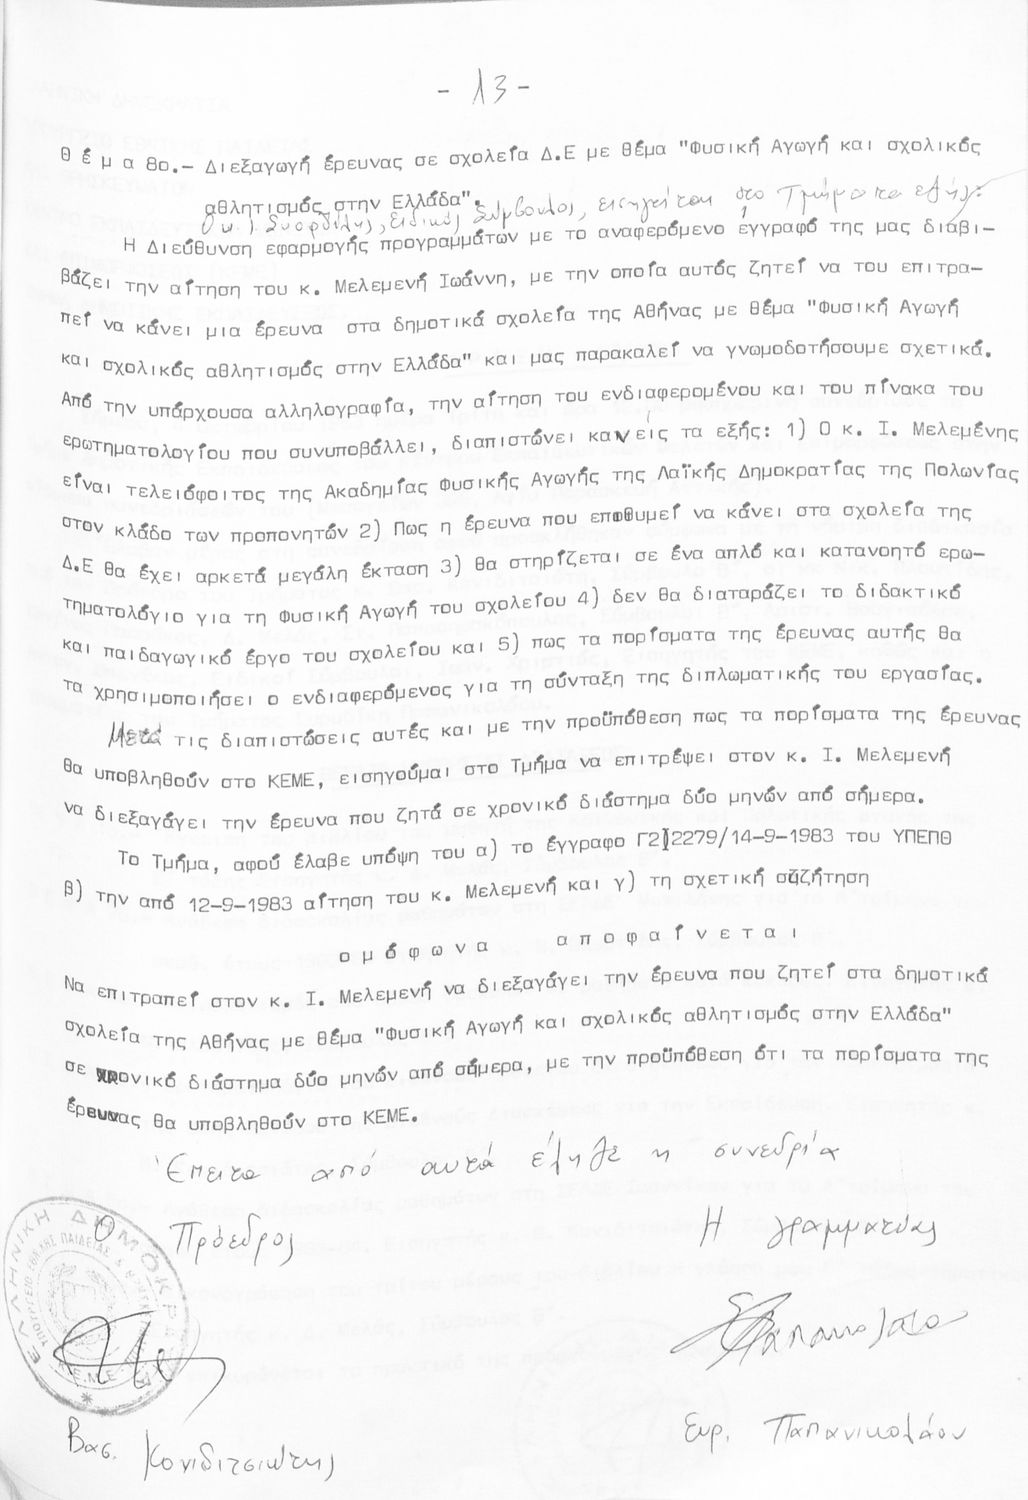 - 13 -
Θ έ μ α 8ο.- Διεξαγωγή έρευνας σε σχολεία Δ.Ε με θέμα "Φυσική Αγωγή και σχολικός
αθλητισμός στην Ελλάδα".
Ο κ. Σκορδίλης, Ειδικός Σύμβουλος, εισηγείται στο Τμήμα τα εξής:
Η Διεύθυνση εφαρμογής προγραμμάτων με το αναφερόμενο έγγραφό της μας διαβι-
βάζει την αίτηση του κ. Μελεμενή Ιωάννη, με την οποία αυτός ζητεί να του επιτρα-
πεί να κάνει μια έρευνα στα δημοτικά σχολεία της Αθήνας με θέμα "Φυσική Αγωγή
και σχολικός αθλητισμός στην Ελλάδα" και μας παρακαλεί να γνωμοδοτήσουμε σχετικά.
Από την υπάρχουσα αλληλογραφία, την αίτηση του ενδιαφερομένου και του πίνακα του
ερωτηματολογίου που συνυποβάλλει, διαπιστώνει κανείς τα εξής: 1) Ο κ. Ι. Μελεμένης
είναι τελειόφοιτος της Ακαδημίας Φυσικής Αγωγής της Λαϊκής Δημοκρατίας της Πολωνίας
στον κλάδο των προπονητών 2) Πως η έρευνα που επιθυμεί να κάνει στα σχολεία της
Δ.Ε θα έχει αρκετά μεγάλη έκταση 3) θα στηρίζεται σε ένα απλό και κατανοητό ερω-
τηματολόγιο για τη Φυσική Αγωγή του σχολείου 4) δεν θα διαταράζει το διδακτικό
και παιδαγωγικό έργο του σχολείου και 5) πως τα πορίσματα της έρευνας αυτής θα
τα χρησιμοποιήσει ο ενδιαφερόμενος για τη σύνταξη της διπλωματικής του εργασίας.
Μετά τις διαπιστώσεις αυτές και με την προϋπόθεση πως τα πορίσματα της έρευνας
θα υποβληθούν στο ΚΕΜΕ, εισηγούμαι στο Τμήμα να επιτρέψει στον κ. Ι. Μελεμενή
να διεξαγάγει την έρευνα που ζητά σε χρονικό διάστημα δύο μηνών από σήμερα.
Το Τμήμα, αφού έλαβε υπόψη του α) το έγγραφο Γ2/2279/14-9-1983 του ΥΠΕΠΘ
β) την από 12-9-1983 αίτηση του κ. Μελεμενή και γ) τη σχετική συζήτηση
ο μ ό φ ω ν α   α π ο φ α ί ν ε τ α ι
Να επιτραπεί στον κ. Ι. Μελεμενή να διεξαγάγει την έρευνα που ζητεί στα δημοτικά
σχολεία της Αθήνας με θέμα "Φυσική Αγωγή και σχολικός αθλητισμός στην Ελλάδα"
σε χρονικό διάστημα δύο μηνών από σήμερα, με την προϋπόθεση ότι τα πορίσματα της
έρευνας θα υποβληθούν στο ΚΕΜΕ.
Έπειτα από αυτά έληξε η συνεδρία
Ο Πρόεδρος   Η Γραμματέας
ΕΛΛΗΝΙΚΗ ΔΗΜΟΚΡΑΤΙΑ
Κ.Ε.Μ.Ε
Βασ. Κονιδιτσιώτης   Ευρ. Παπανικολάου